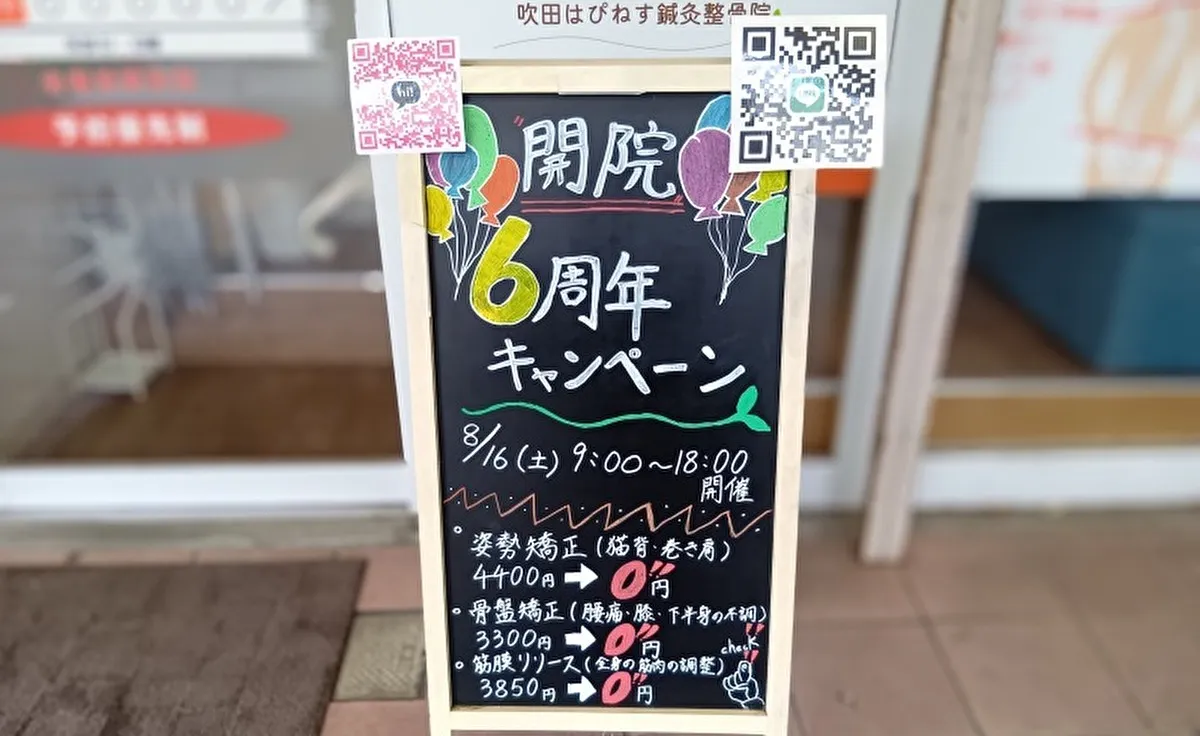 吹田はぴねす鍼灸整骨院
hi!
"開院"
6周年
キャンペーン
8/16(土) 9:00～18:00
開催
。姿勢矯正(猫背・巻き肩)
4400円➡0"円
。骨盤矯正(腰痛・膝・下半身の不調)
3300円➡0"円
check!!
。筋膜リリース(全身の筋肉の調整)
3850円➡0"円
予約優先制